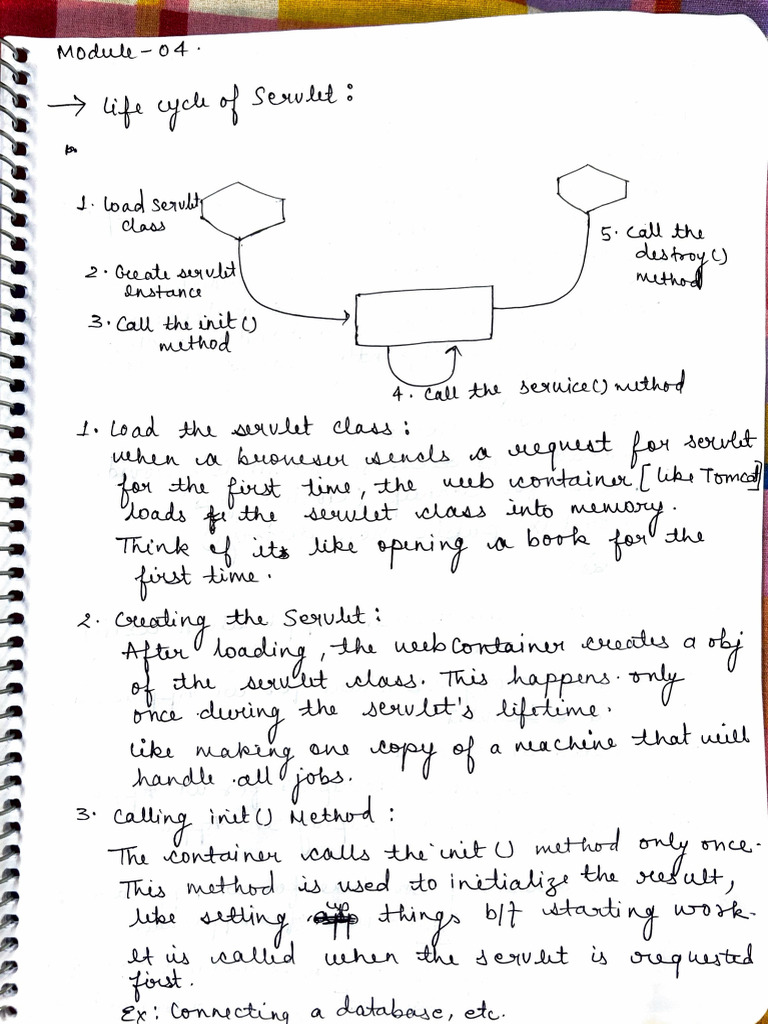 Module-04.
→ life cycle of Servlet:
1. Load servlet
class
2. Create servlet
Instance
3. Call the init()
method
5. Call the
destroy()
method
4. Call the service() method
1. Load the servlet class:
when a browser sends a request for servlet
for the first time, the web container [like Tomcat]
loads the servlet class into memory.
Think of it like opening a book for the
first time.
2. Creating the Servlet:
After loading, the web container creates a obj
of the servlet class. This happens only
once during the servlet's lifetime.
like making one copy of a machine that will
handle all jobs.
3. Calling init() Method:
The container calls the init() method only once.
This method is used to initialize the result,
like setting up things b/f starting work.
It is called when the servlet is requested
first.
Ex: Connecting a database, etc.